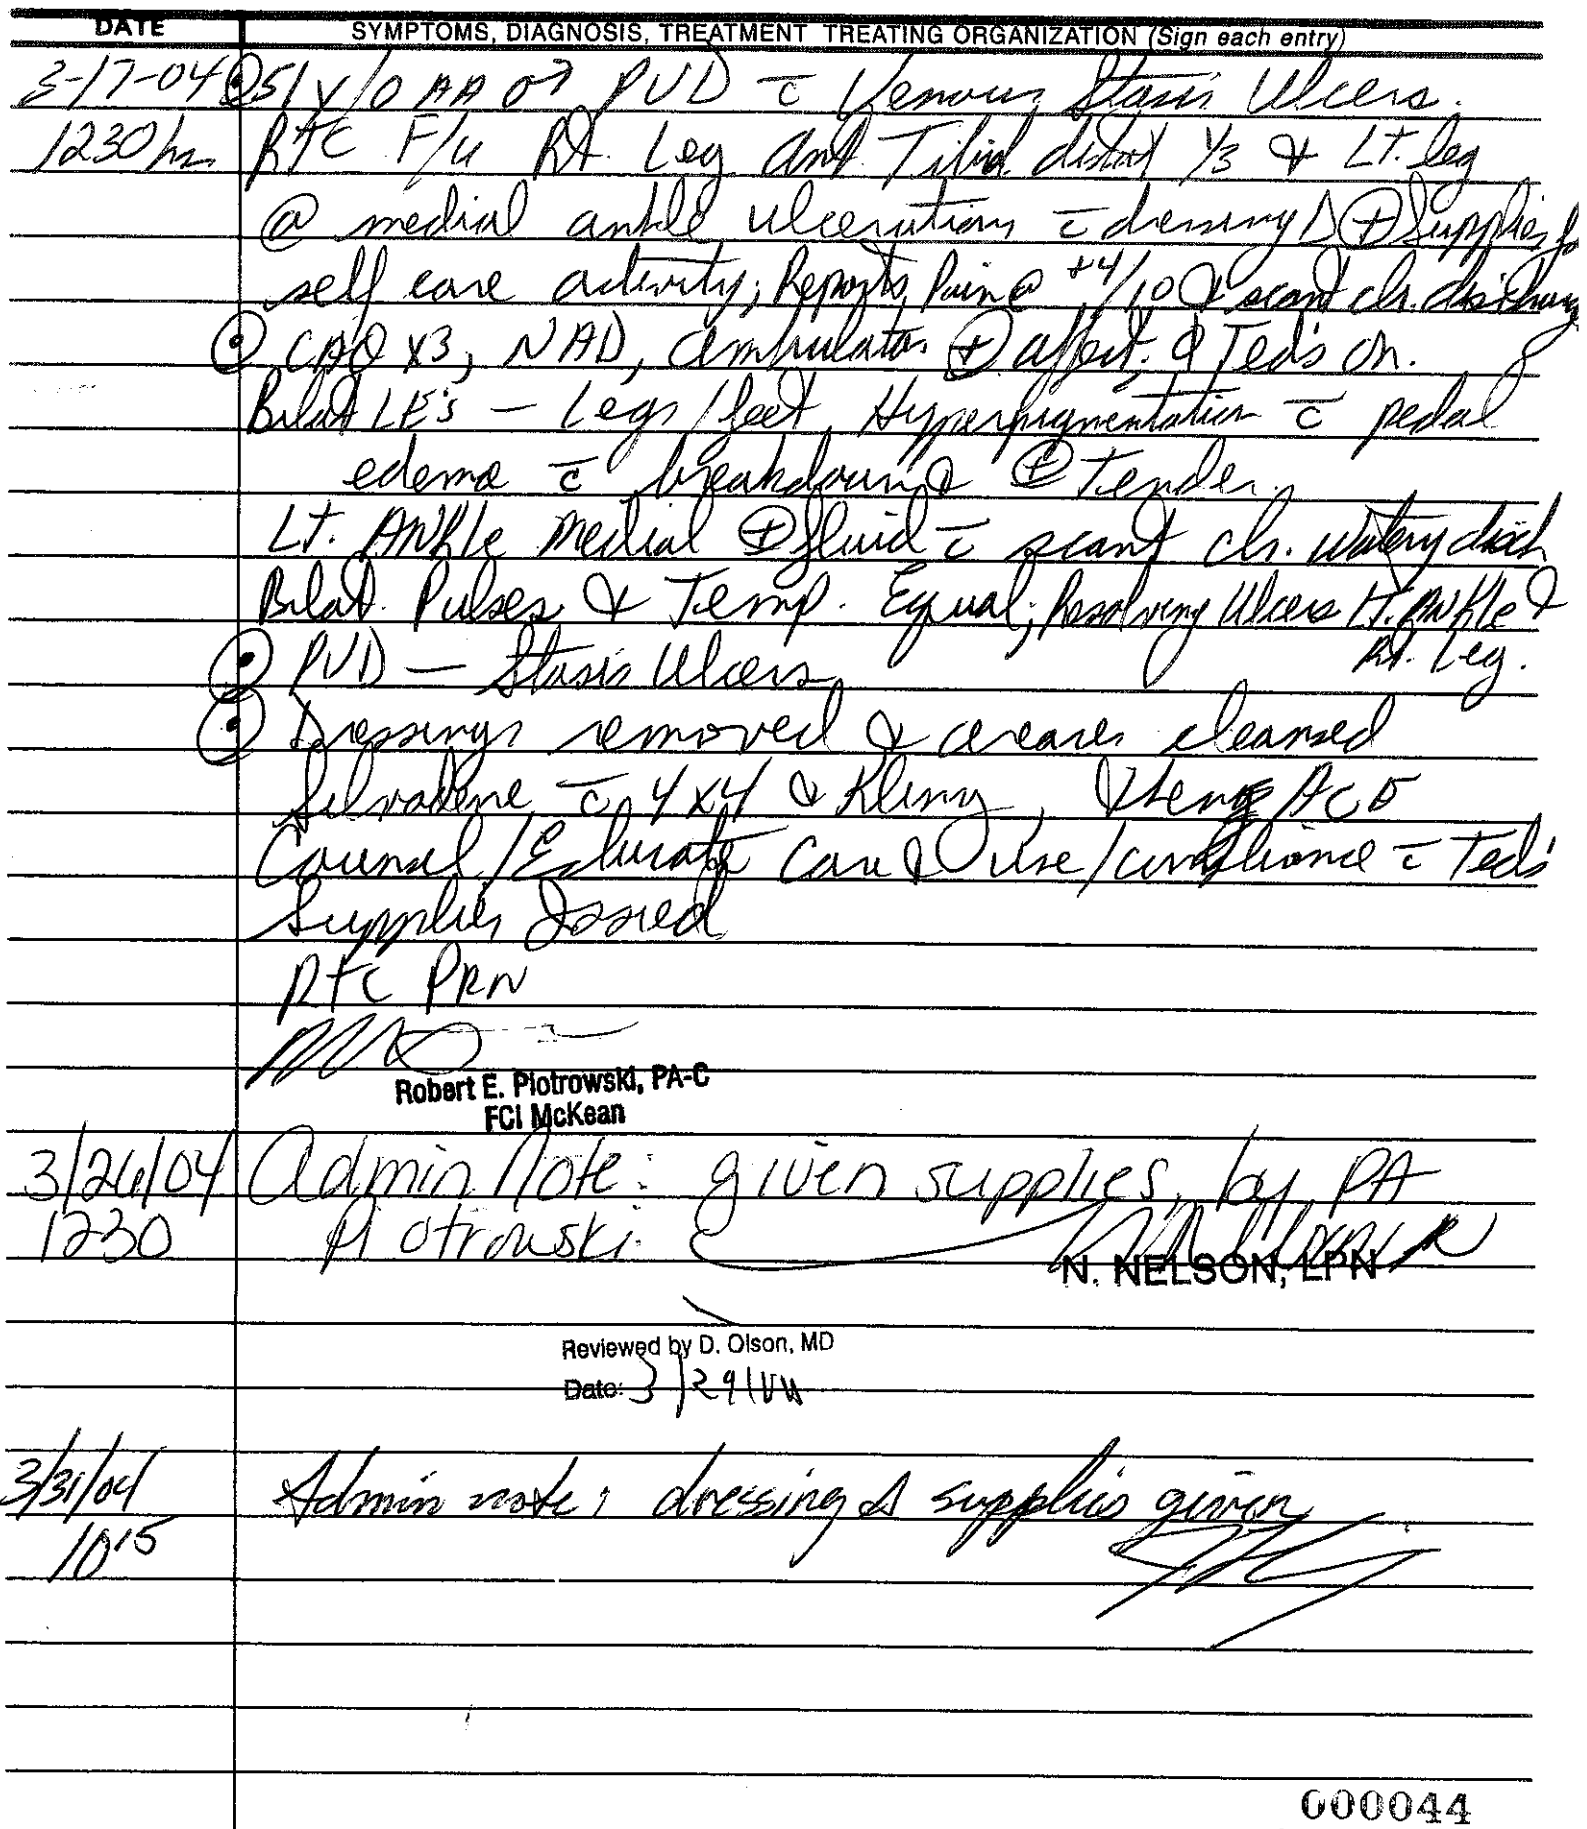 DATE SYMPTOMS, DIAGNOSIS, TREATMENT TREATING ORGANIZATION (Sign each entry)
3-17-04 51 y/o AA ♂ PVD c̄ Venous Stasis Ulcers.
1230 hrs RTC F/u Rt. Leg Ant. Tibia distal 1/3 & Lt. leg
@ medial ankle ulcerations c̄ dressing Δ ⊕ Supplies for
self care activity; Reports Pain @ +4/10 & scant clr. discharge
CAO x3, NAD, ambulator ⊕ affect, Ted's on.
Bilat LE's — Legs/feet Hyperpigmentation c̄ pedal
edema c̄ breakdown & ⊕ Tender.
Lt. Ankle Medial ⊕ fluid c̄ scant clr. watery disch
Bilat. Pulses & Temp. Equal; Resolving Ulcers Lt. Ankle &
Rt. Leg.
PVD — Stasis Ulcers
Dressings removed & areas cleansed
Silvadene c̄ 4x4 & Kling,
Counsel/Educate Care & Use/compliance c̄ Ted's
Supplies Issued
RTC PRN
Robert E. Piotrowski, PA-C
FCI McKean
3/26/04 Admin Note: given supplies by PA
1230 Piotrowski.
N. NELSON, LPN
Reviewed by D. Olson, MD
Date: 3/29/04
3/31/04 Admin note: dressing Δ supplies given
1015
000044